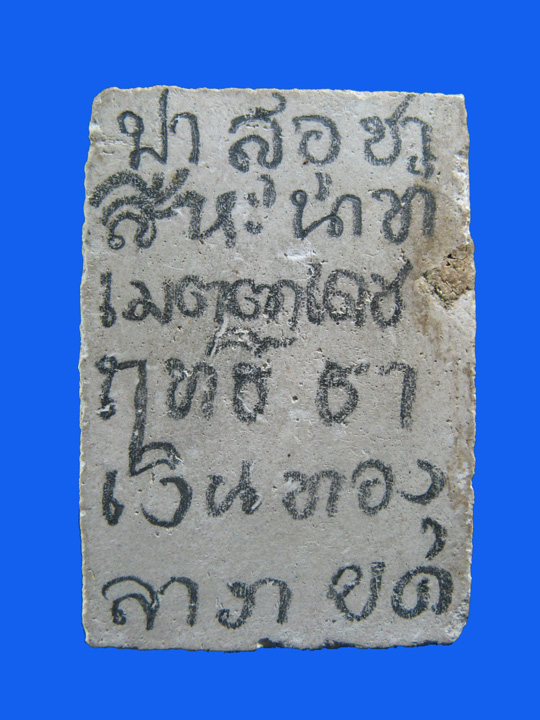 ปา สุ อุ ชา
สีหะ นาทา
เมตตา เดช
ฤทธิ์ ชา
เงิน ทอง
ลาภ ยศ